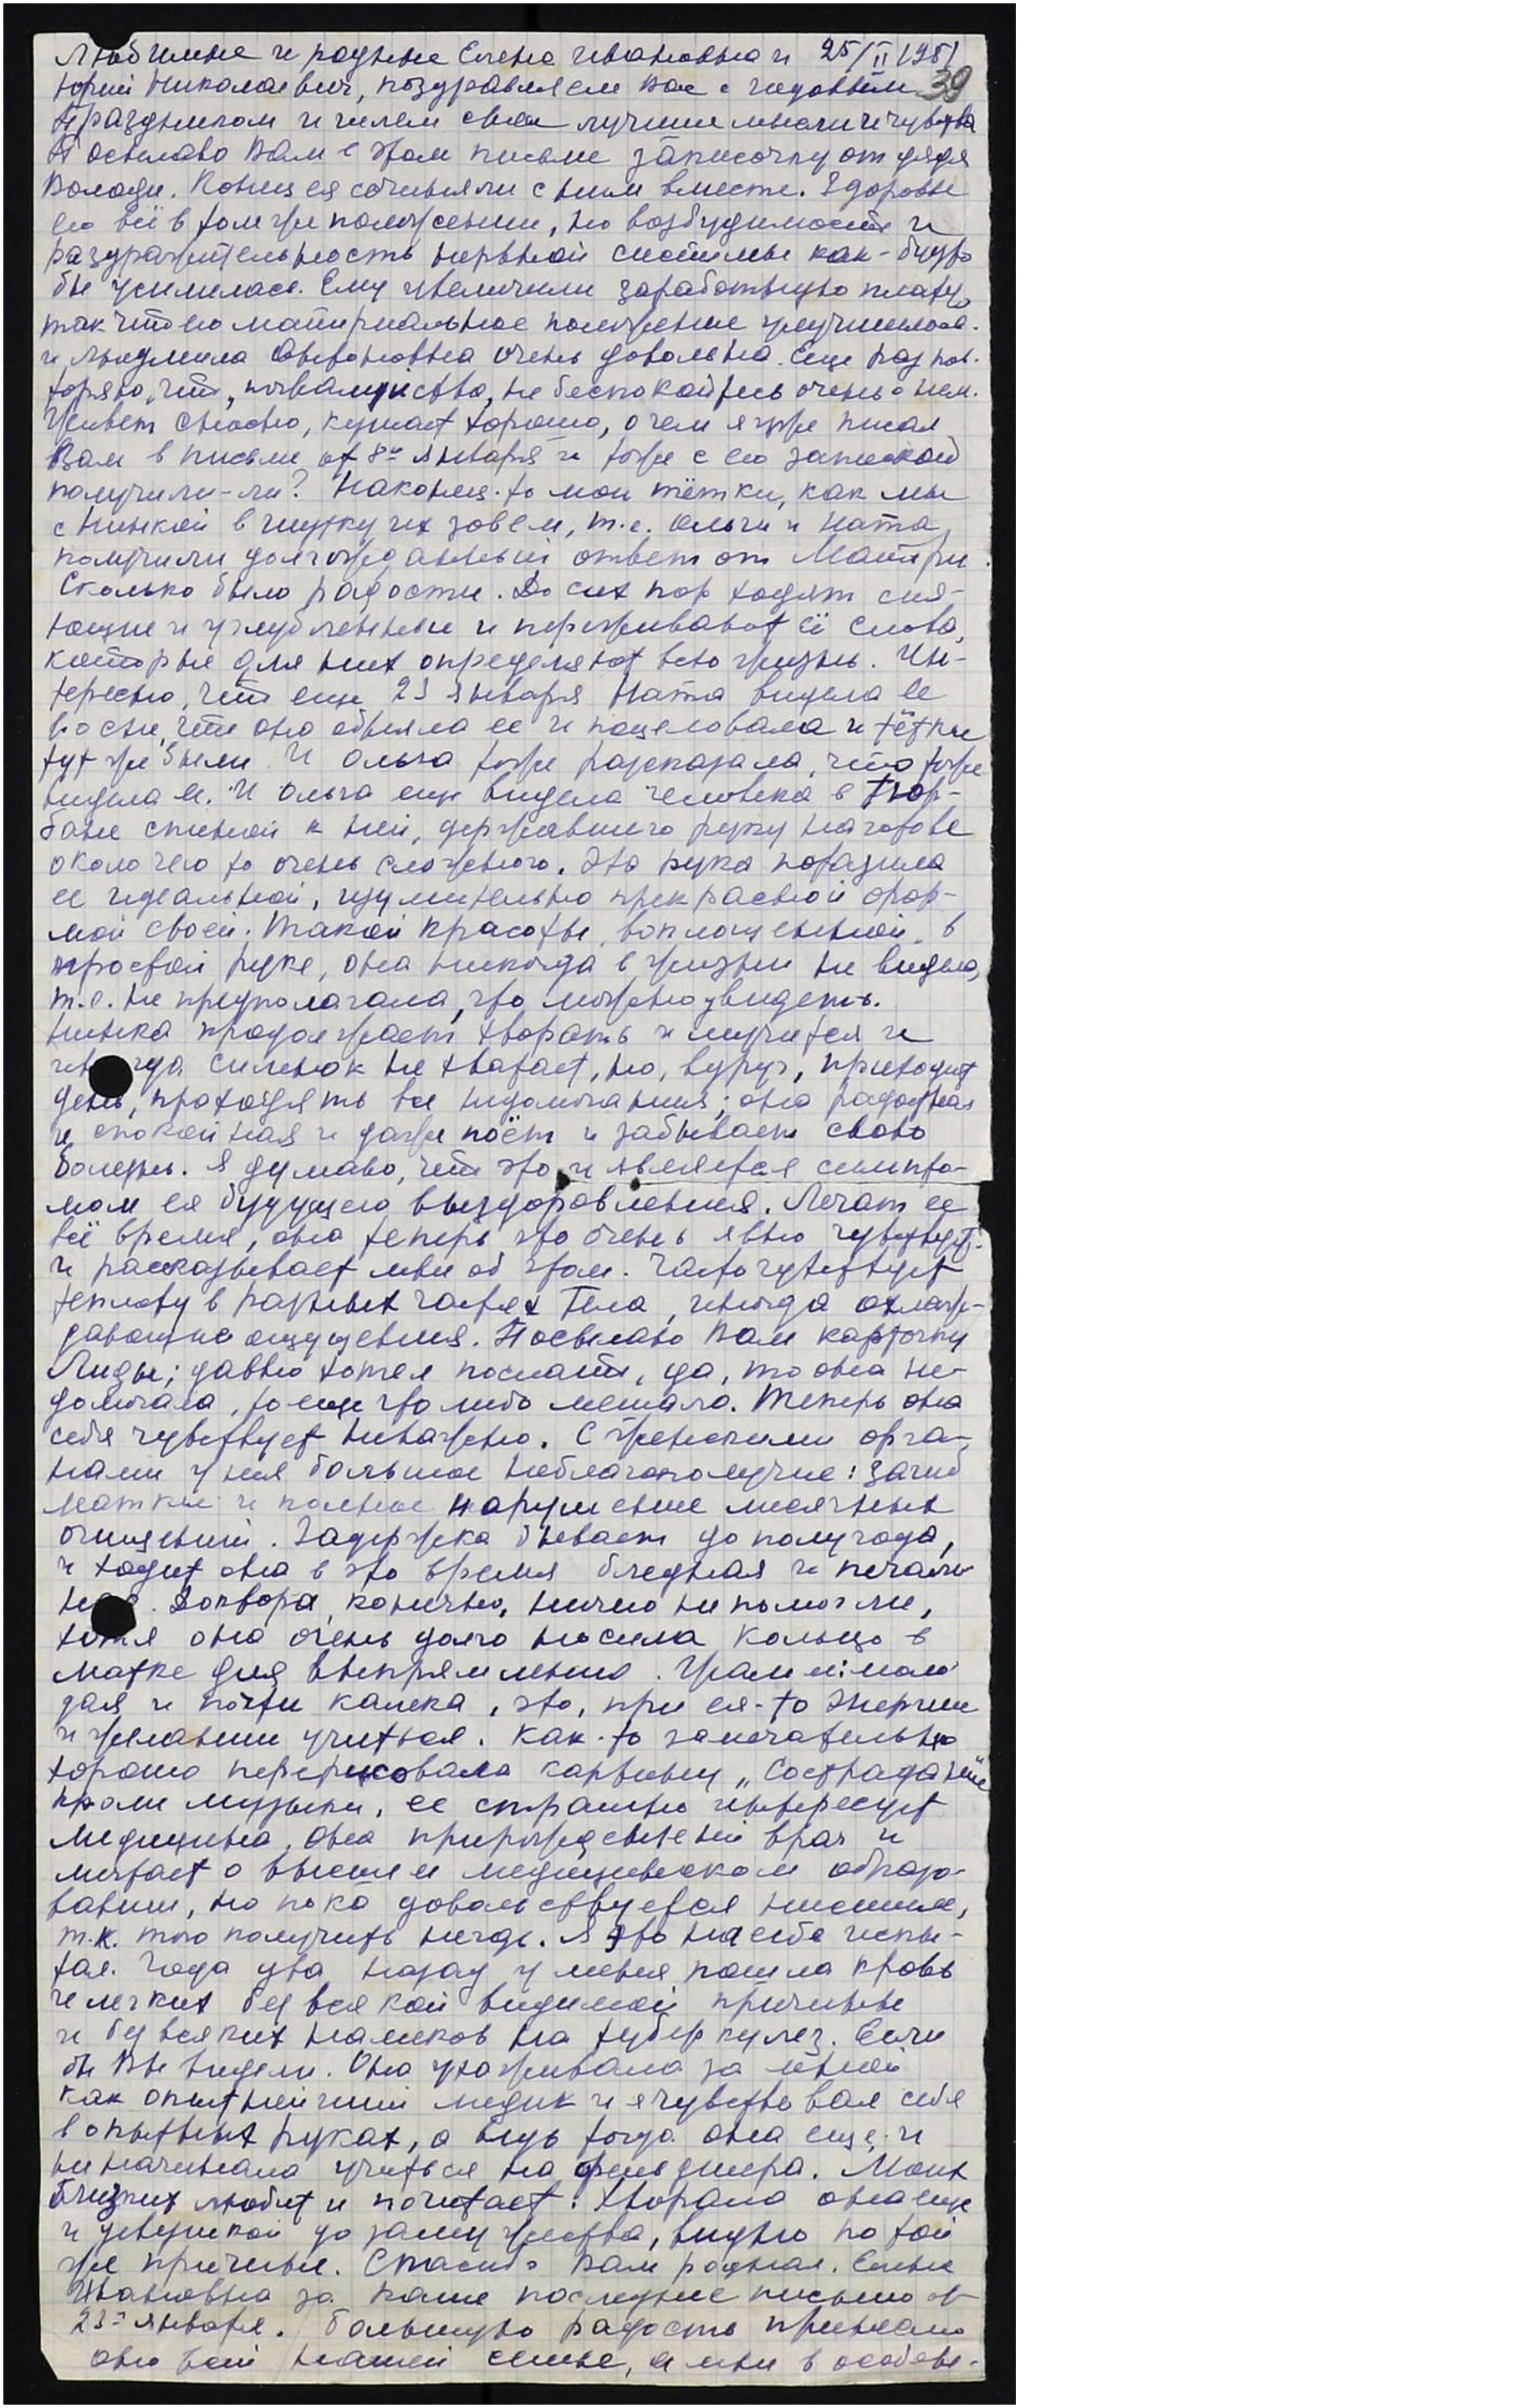 Любимые и родные Елена Ивановна и 25/II 1951
Юрий Николаевич, поздравляем Вас с годовым 39
Праздником и шлем свои лучшие мысли и чувства
Посылаю Вам в этом письме записочку от дяди
Володи. Конец ея сочиняли с ним вместе. Здоровье
его всё в том же положении, но возбудимость и
раздражительность нервной системы как-будто
бы усилилась. Ему увеличили заработную плату,
так что его материальное положение улучшилось.
и Людмила очень довольна. Еще раз пов-
торяю, что, не беспокойтесь очень о нем.
Живет сносно, кушает хорошо, о чем я уже писал
Вам в письме от 8го Января и тоже с его запиской
получили-ли? Наконец-то мои тётки, как мы
с Нинкой в шутку их зовем, т.е. Ольга и Ната,
получили долгожданный ответ от Матери.
Сколько было радости. До сих пор ходят сия-
ющие и углубленные и переживают её слова,
которые для них определяют всю жизнь. Ин-
тересно, что еще 23 Января Ната видела ее
во сне, что она обняла ее и поцеловала и тётки
тут же были. И Ольга тоже рассказала, что тоже
видела ее. И Ольга еще видела человека в тюр-
бане спиной к ней, державшего руку наготове
около чего то очень сложного. Эта рука поразила
ее идеальной, изумительно прекрасной фор-
мой своей. Такой красоты, воплощенной, в
простой руке, она никогда в жизни не видела,
т.е. не предполагала, что можно увидеть.
Нинка продолжает хворать и мучится и
иногда силенок не хватает, но, вдруг, приходит
день, проходять все недомогания; она радостная
и спокойная и даже поёт и забывает свою
болезнь. Я думаю, что это и является симпто-
мом ея будущего выздоровления. Лечат ее
всё время, она теперь это очень явно чувствует
и рассказывает мне об этом. Часто чувствует
теплоту в разных частях тела, иногда охлаж-
дающие ощущения. Посылаю Вам карточку
Лиды; давно хотел послать, да, то она не-
домогала, то еще что либо мешало. Теперь она
себя чувствует неважно. С женскими орга-
нами у нея большое неблагополучие: загиб
матки и полное нарушение месячных
очищений. Задержка бывает до полугода,
и ходит она в это время бледная и печаль-
ная. Доктора, конечно, ничего не помогли,
хотя она очень долго носила кольцо в
матке для выпрямления. Жаль ее: моло-
дая и почти калека, это, при ея-то энергии
и желании учиться. Как-то замечательно
хорошо перерисовала картину „Сострадание“
кроме музыки, ее страшно интересует
медицина. Она прирожденный врач и
мечтает о высшем медицинском образо-
вании, но пока довольствуется низшим,
т.к. того получить негде. Я это на себе испы-
тал. Года два назад у меня пошла кровь
из легких без всякой видимой причины
и без всяких намеков на туберкулез. Если
бы Вы видели. Она ухаживала за мной
как опытнейший медик и я чувствовал себя
в опытных руках, а ведь тогда она еще и
не начинала учиться на фельдшера. Моих
близких любит и почитает. Хворала она еще
и девушкой до замужества, видно по той
же причине. Спасибо Вам родная. Елена
Ивановна за Ваше последнее письмо от
23го Января. Большую радость принесло
оно всей нашей семье, а мне в особен-